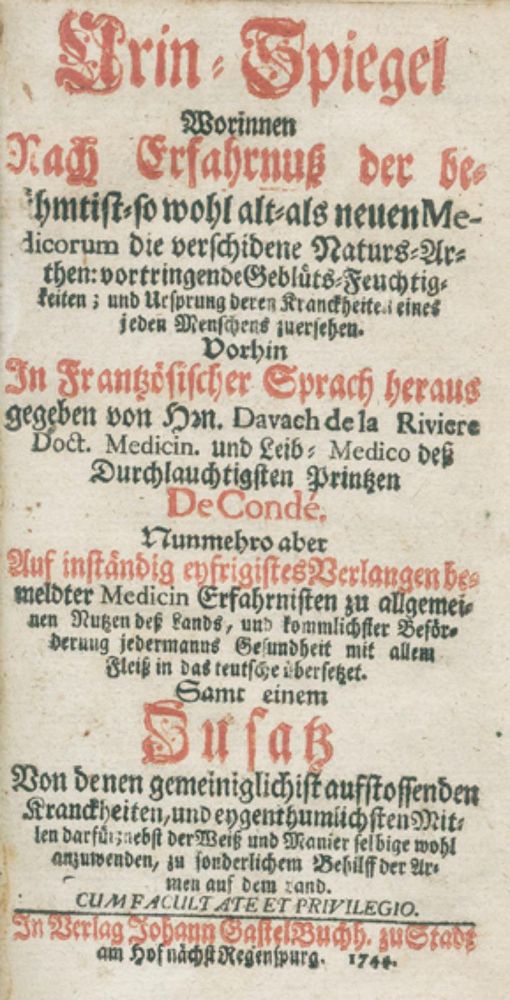 Urin-Spiegel
Worinnen
Nach Erfahrnuß der be-
ühmtist-so wohl alt-als neuen Me-
dicorum die verschidene Naturs-Ar-
then: vortringende Geblüts-Feuchtig-
keiten; und Ursprung deren Kranckheiten eines
jeden Menschens zuersehen.
Vorhin
In Frantzösischer Sprach heraus
gegeben von Hrn. Davach de la Riviere
Doct. Medicin. und Leib-Medico deß
Durchlauchtigsten Printzen
De Condé.
Nunmehro aber
Auf inständig eyfrigistes Verlangen be-
meldter Medicin Erfahrnisten zu allgemei-
nen Nutzen deß Lands, und kommlichster Beför-
derung jedermanns Gesundheit mit allem
Fleiß in das teutsche übersetzet.
Samt einem
Zusatz
Von denen gemeiniglichist aufstossenden
Kranckheiten, und eygenthumlichsten Mit-
len darfür; nebst der Weiß und Manier selbige wohl
anzuwenden, zu sonderlichem Behilff der Ar-
men auf dem Land.
CUM FACULTATE ET PRIVILEGIO.
In Verlag Johann Gastel Buchh. zu Stadt
am Hof nächst Regenspurg. 1744.